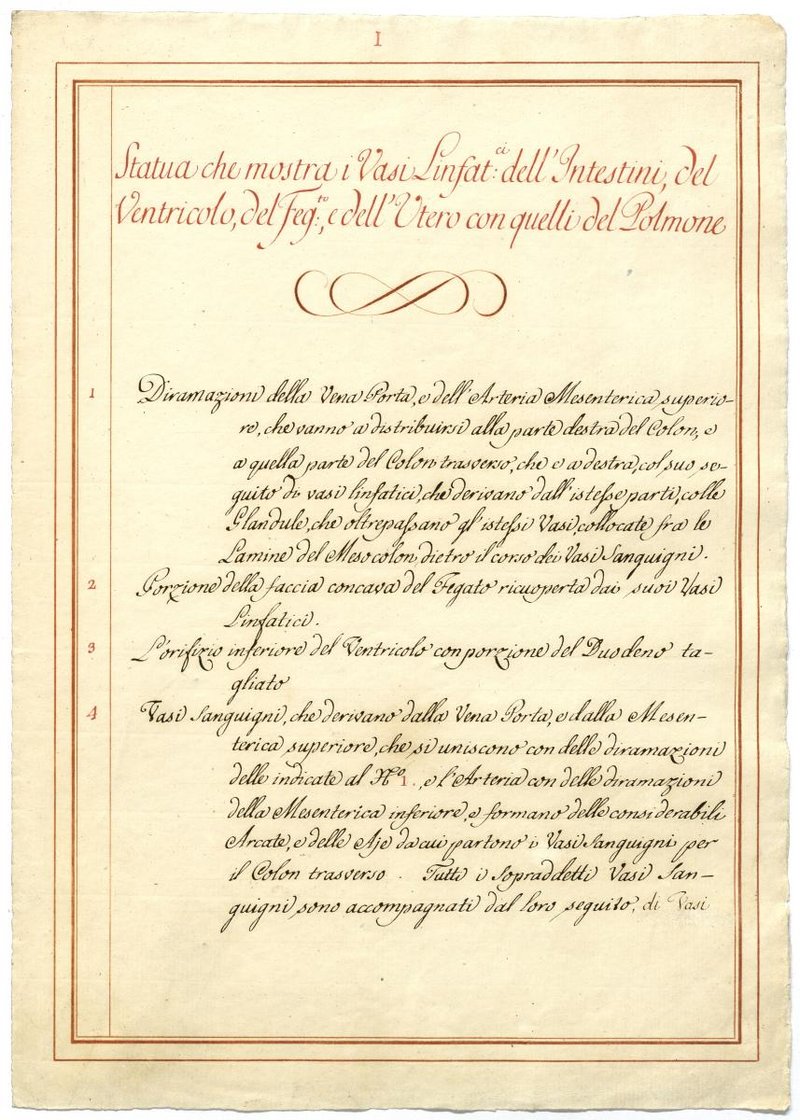 I
Statua che mostra i Vasi Linfat:ci dell'Intestini, del
Ventricolo, del Feg:to, e dell'Utero con quelli del Polmone
1 Diramazioni della Vena Porta, e dell'Arteria Mesenterica superio-
re, che vanno a distribuirsi alla parte destra del Colon, e
a quella parte del Colon trasverso, che e a destra, col suo se-
guito di vasi linfatici, che derivano dall'istesse parti, colle
Glandule, che oltrepassano gl'istessi Vasi, collocate fra le
Lamine del Mesocolon, dietro il corso dei Vasi Sanguigni.
2 Porzione della faccia concava del Fegato ricuoperta dai suoi Vasi
Linfatici.
3 L'orifizio inferiore del Ventricolo con porzione del Duodeno ta-
gliato
4 Vasi Sanguigni, che derivano dalla Vena Porta, e dalla Mesen-
terica superiore, che si uniscono con delle diramazioni
delle indicate al No. 1., e l'Arteria con delle diramazioni
della Mesenterica inferiore, e formano delle considerabili
Arcate, e delle Aje da cui partono i Vasi Sanguigni per
il Colon trasverso. Tutti i Sopraddetti Vasi San-
guigni, sono accompagnati dal loro seguito, di Vasi